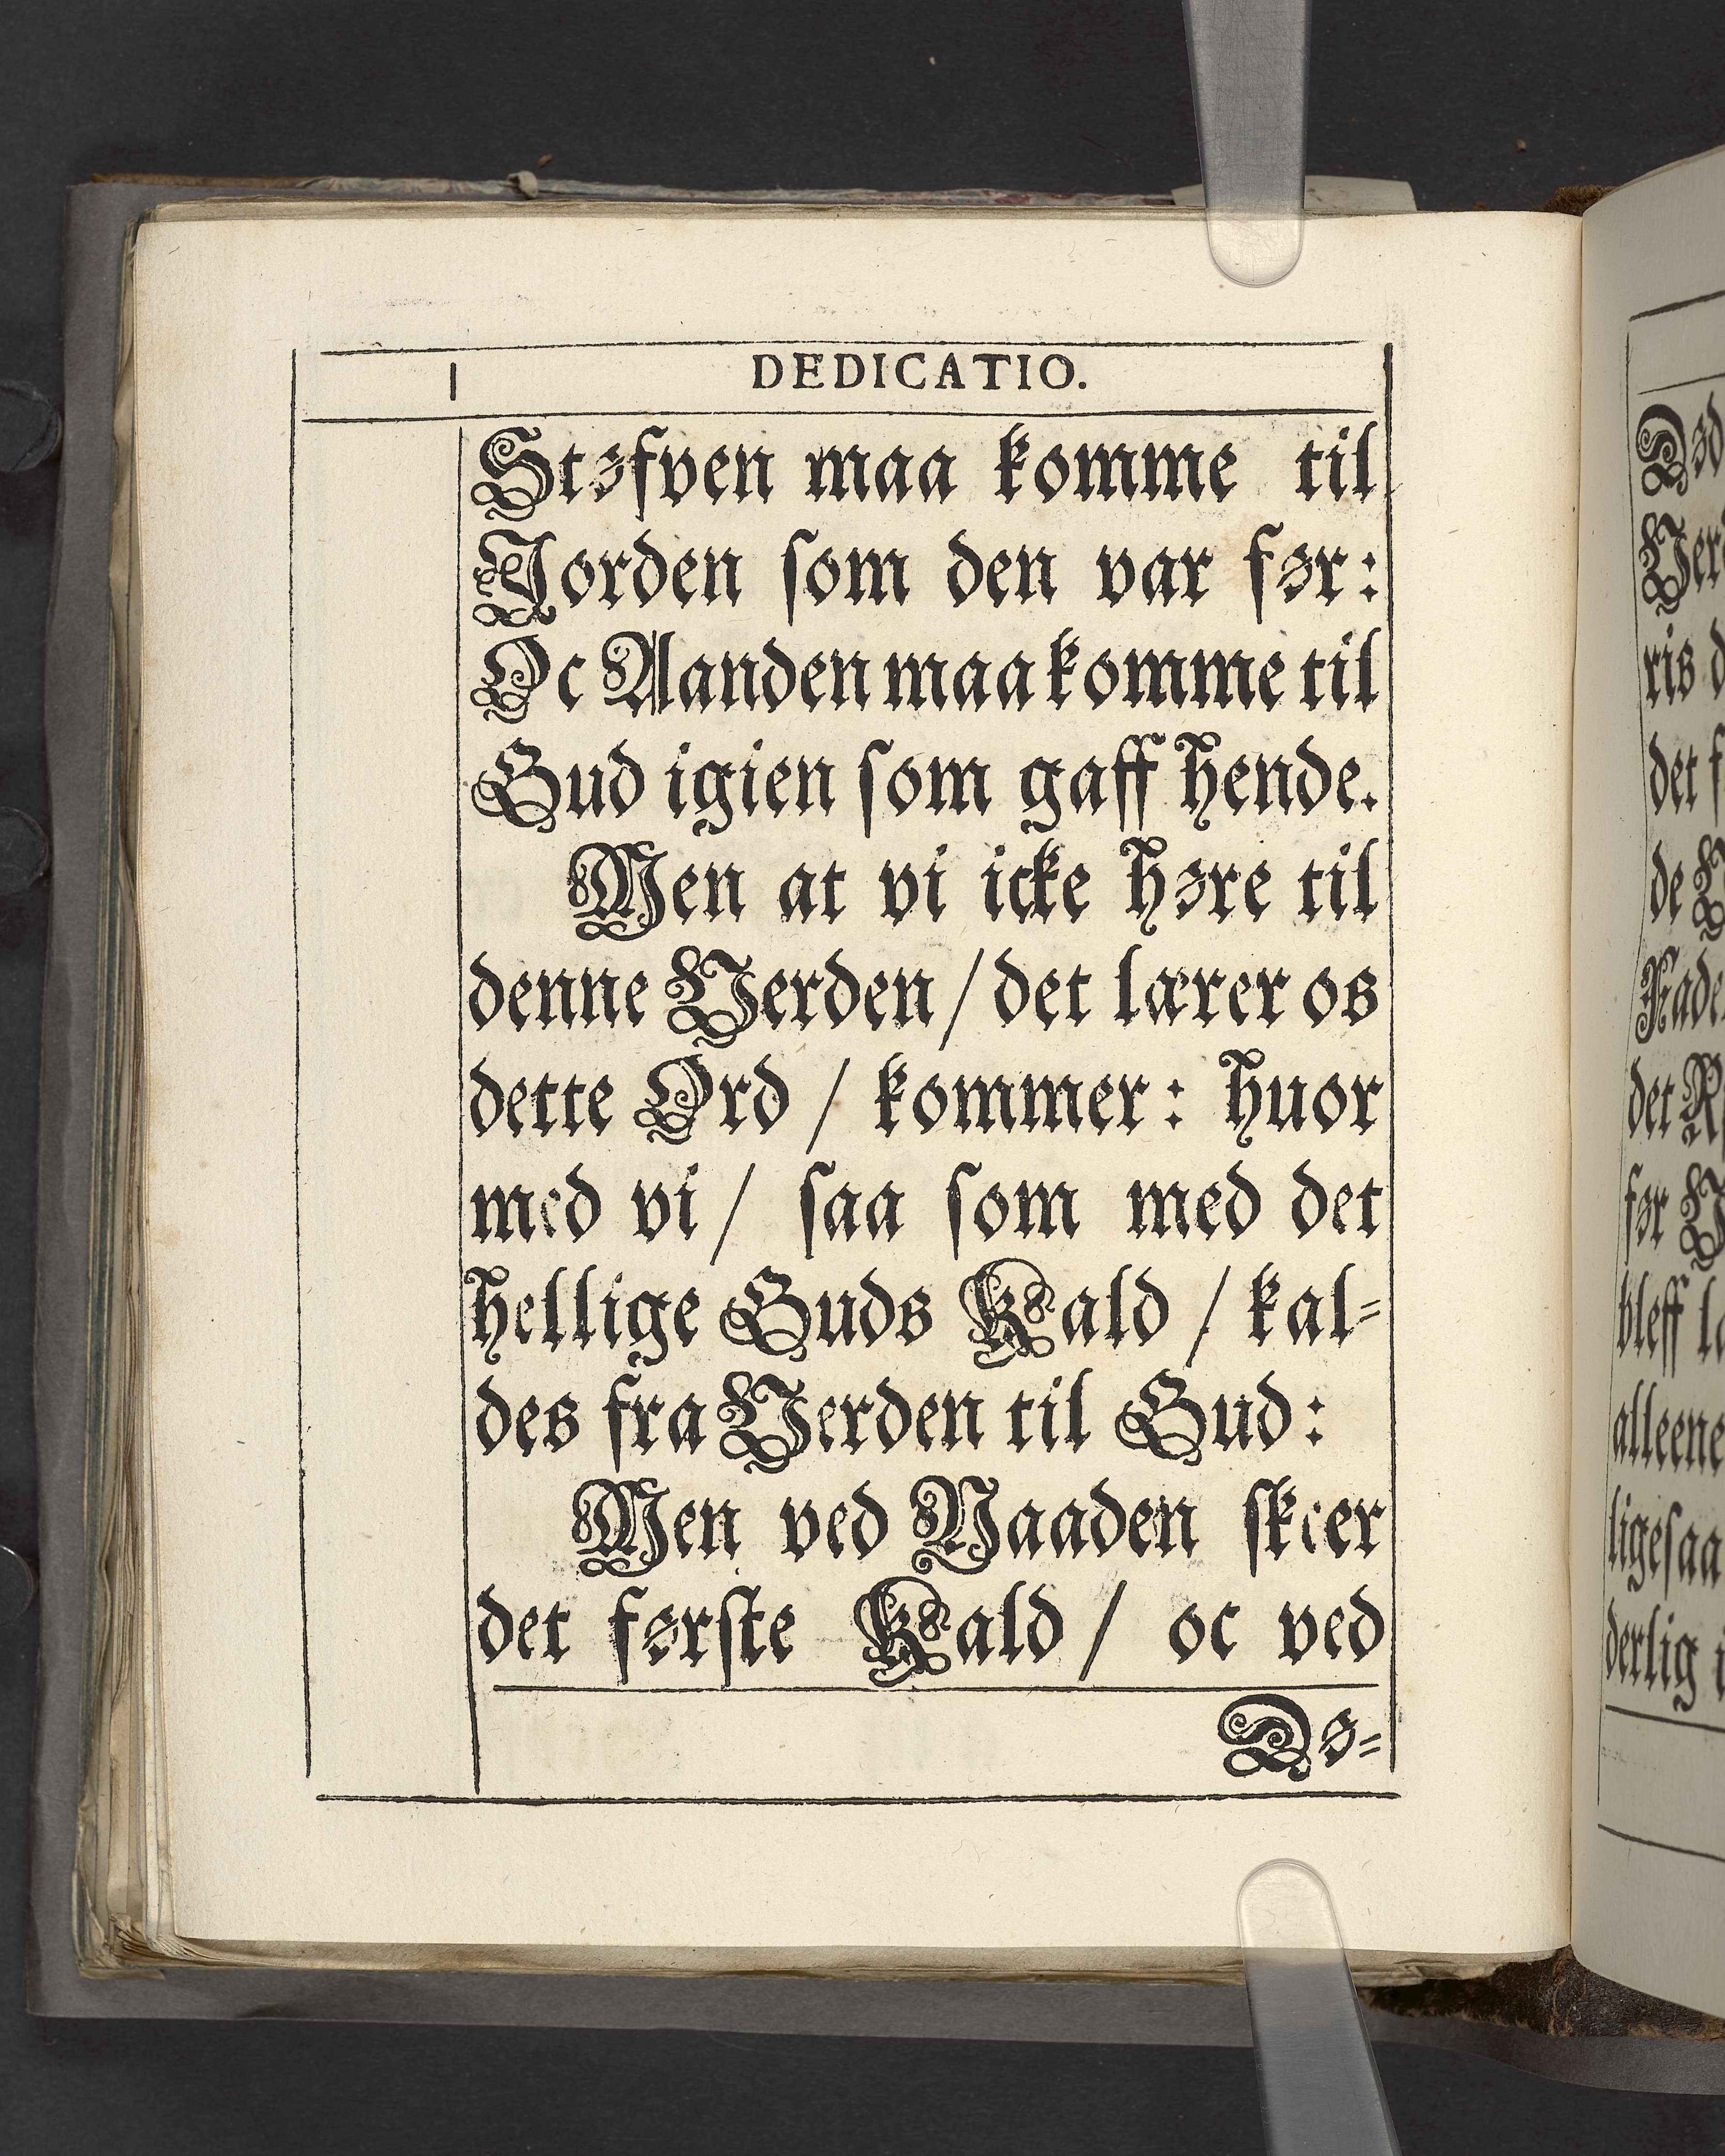 DEDICATIO.
Støfven maa komme til
Jorden som den var før:
Oc Aanden maa komme til
Gud igien som gaff hende.
Men at vi icke høre til
denne Verden / det lærer os
dette Ord / kommer: huor
med vi / saa som med det
hellige Guds Kald / kal=
des fra Verden til Gud:
Men ved Naaden skeer
det første Kald / oc ved
Dø=
ris
det
de
det
før
bleff
alleene
ligesaa
derlig